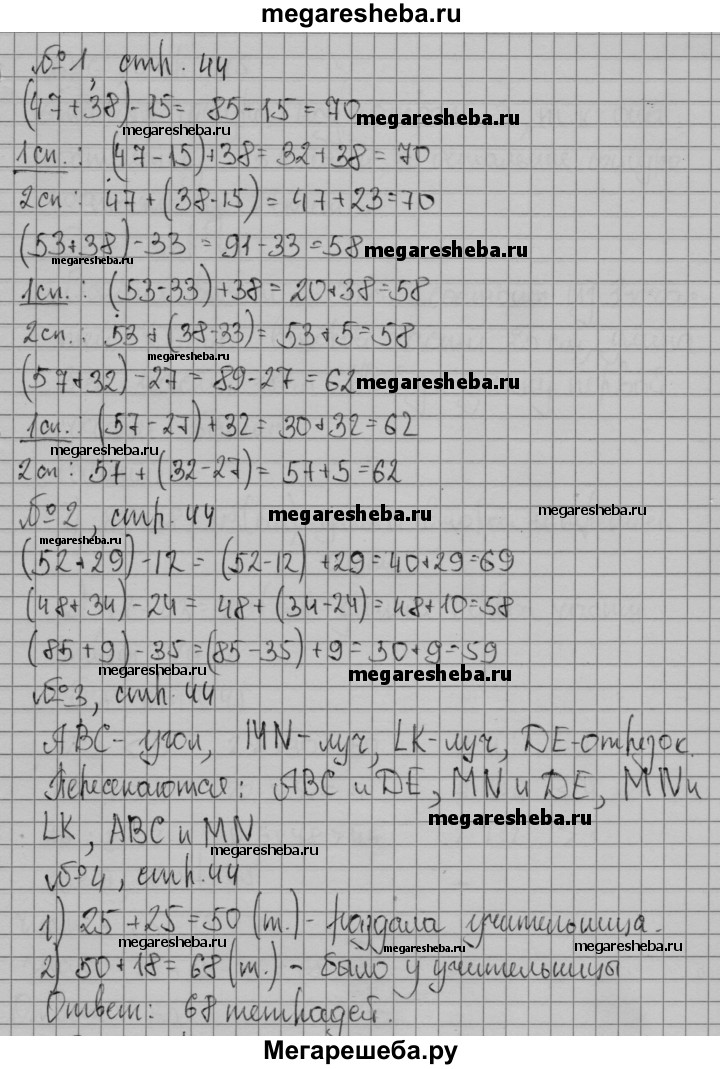 megaresheba.ru
№1 стр. 44
(47+38)-15= 85-15=70
megaresheba.ru
megaresheba.ru
1сп.: (47-15)+38=32+38=70
2сп: 47+(38-15)=47+23=70
(53+38)-33=91-33=58
megaresheba.ru
megaresheba.ru
1сп.: (53-33)+38=20+38=58
2сп.: 53+(38-33)=53+5=58
megaresheba.ru
(57+32)-27=89-27=62
megaresheba.ru
1сп.: (57-27)+32=30+32=62
megaresheba.ru
2сп: 57+(32-27)=57+5=62
№2, стр. 44
megaresheba.ru
megaresheba.ru
megaresheba.ru
(52+29)-12=(52-12)+29=40+29=69
(48+34)-24=48+(34-24)=48+10=58
(85+9)-35=(85-35)+9=30+9=59
megaresheba.ru
megaresheba.ru
№3, стр. 44
ABC-угол, MN-луч, LK-луч, DE-отрезок.
Пересекаются: ABC и DE, MN и DE, MN и
LK, ABC и MN
megaresheba.ru
megaresheba.ru
№4, стр. 44
1) 25+25=50 (т.)- раздала учительница.
megaresheba.ru
megaresheba.ru
megaresheba.ru
2) 50+18=68 (т.) - было у учительницы
Ответ: 68 тетрадей.
Мегарешеба.ру